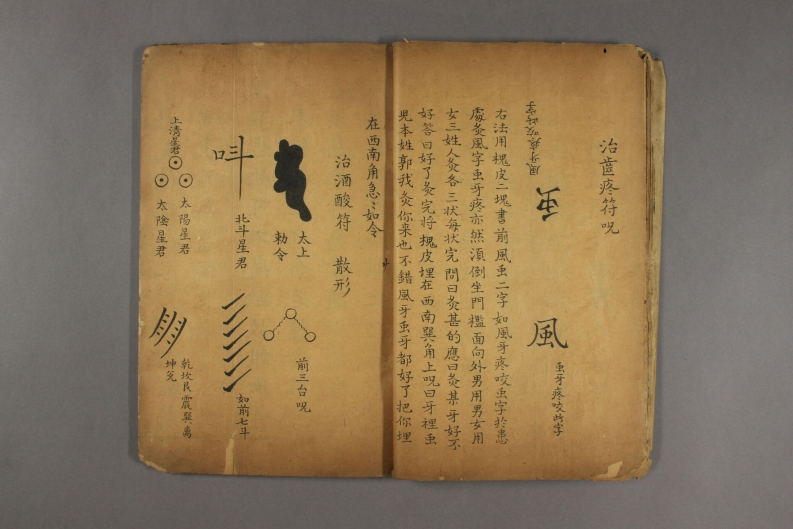 治齒疼符呪
風牙疼咬此字
虫
風
虫牙疼咬此字
右法用槐皮二塊書前風虫二字如風牙疼咬虫字於患
處灸風字虫牙疼亦然須倒坐門檻面向外男用男女用
女三姓人灸各三状每状完問曰灸甚的應曰灸某牙好不
好答曰好了灸完將槐皮埋在西南巽角上呪曰牙裡虫
兒本姓郭我灸你来也不錯風牙虫牙都好了把你埋
在西南角急〻如令
治酒酸符 散形
太上
勅令
前三台呪
呌
北斗星君
如前七斗
上清星君
太陽星君
太陰星君
乾坎艮震巽离
坤兌